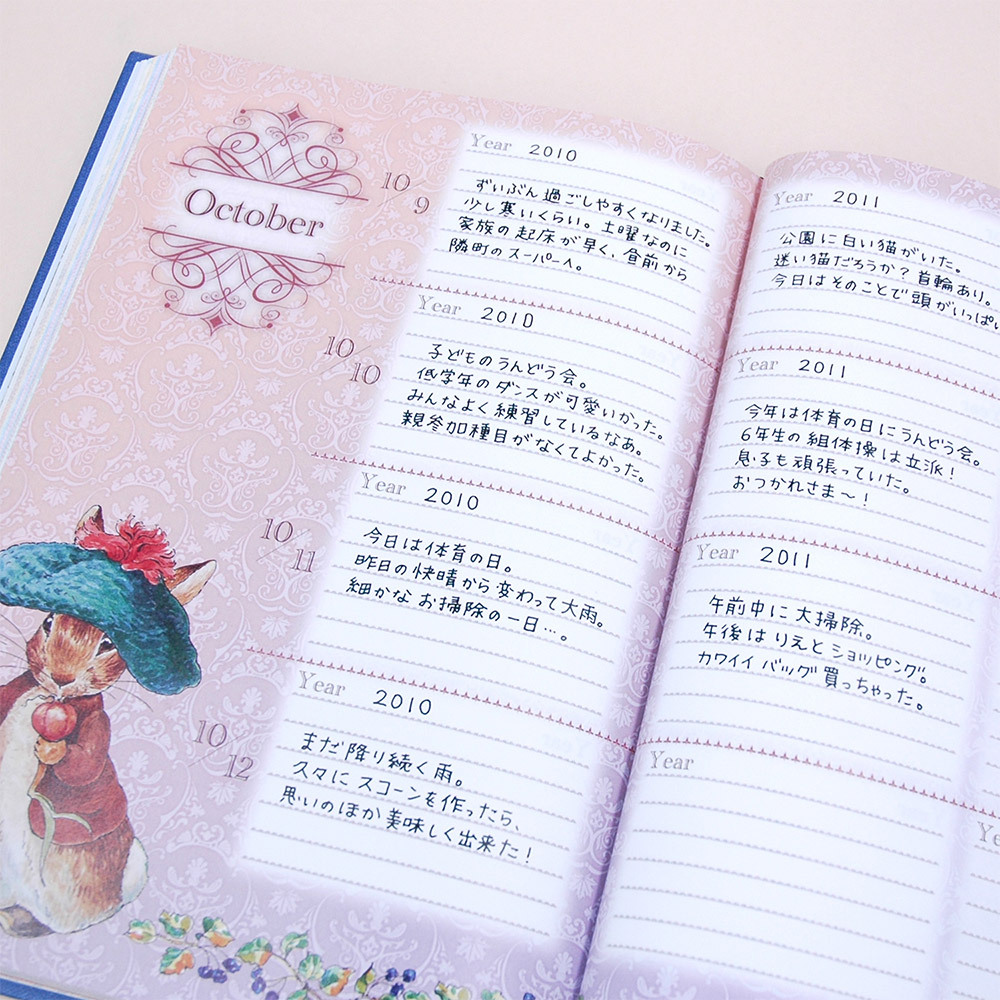 October
10/9
Year 2010
ずいぶん過ごしやすくなりました。
少し寒いくらい。土曜なのに
家族の起床が早く、昼前から
隣町のスーパーへ。
10/10
Year 2010
子どものうんどう会。
低学年のダンスが可愛いかった。
みんなよく練習しているなあ。
親参加種目がなくてよかった。
10/11
Year 2010
今日は体育の日。
昨日の快晴から変わって大雨。
細かなお掃除の一日…。
10/12
Year 2010
まだ降り続く雨。
久々にスコーンを作ったら、
思いのほか美味しく出来た!
Year 2011
公園に白い猫がいた。
迷い猫だろうか?首輪あり。
今日はそのことで頭がいっぱい
Year 2011
今年は体育の日にうんどう会。
6年生の組体操は立派!
息子も頑張っていた。
おつかれさま〜!
Year 2011
午前中に大掃除。
午後はりえとショッピング。
カワイイバッグ買っちゃった。
Year
Ye